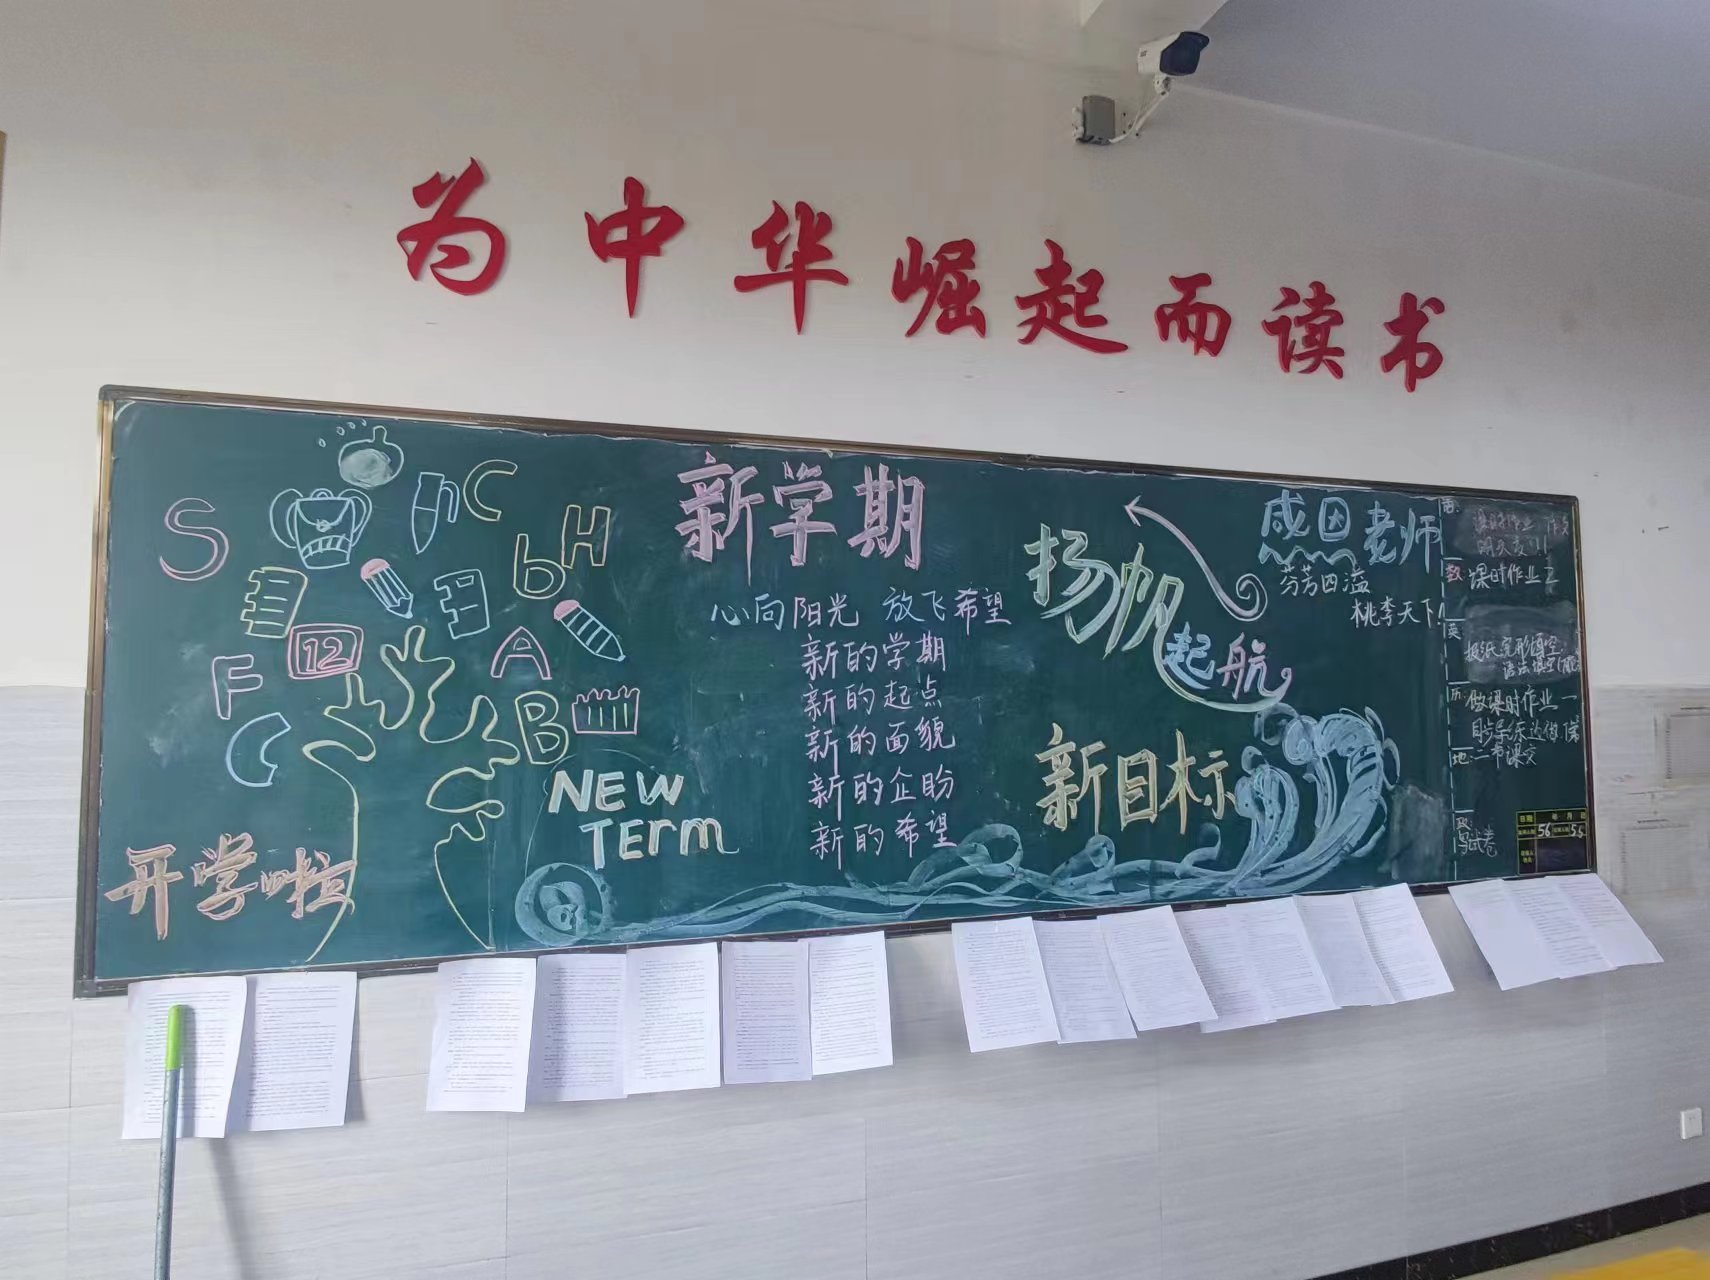 为中华崛起而读书
S
n
C
b
H
12
A
F
B
C
开学啦
NEW
TErm
新学期
心向阳光 放飞希望
新的学期
新的起点
新的面貌
新的企盼
新的希望
扬帆
起航
新目标
感因老师
芬芳四溢
桃李天下!
课时作业
数: 课时作业 2
英
报纸完形填空
语法填空
历: 做课时作业一
地: 二节课文
政:
写试卷
日期 年 月 日
56 56